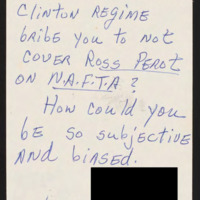 CLINTON REGIME
bRIbE YOU TO NOT
COVER ROSS PEROT
ON N.A.F.T.A ?
HOW COULD YOU
bE SO SUbJECTIVE
AND bIASED.